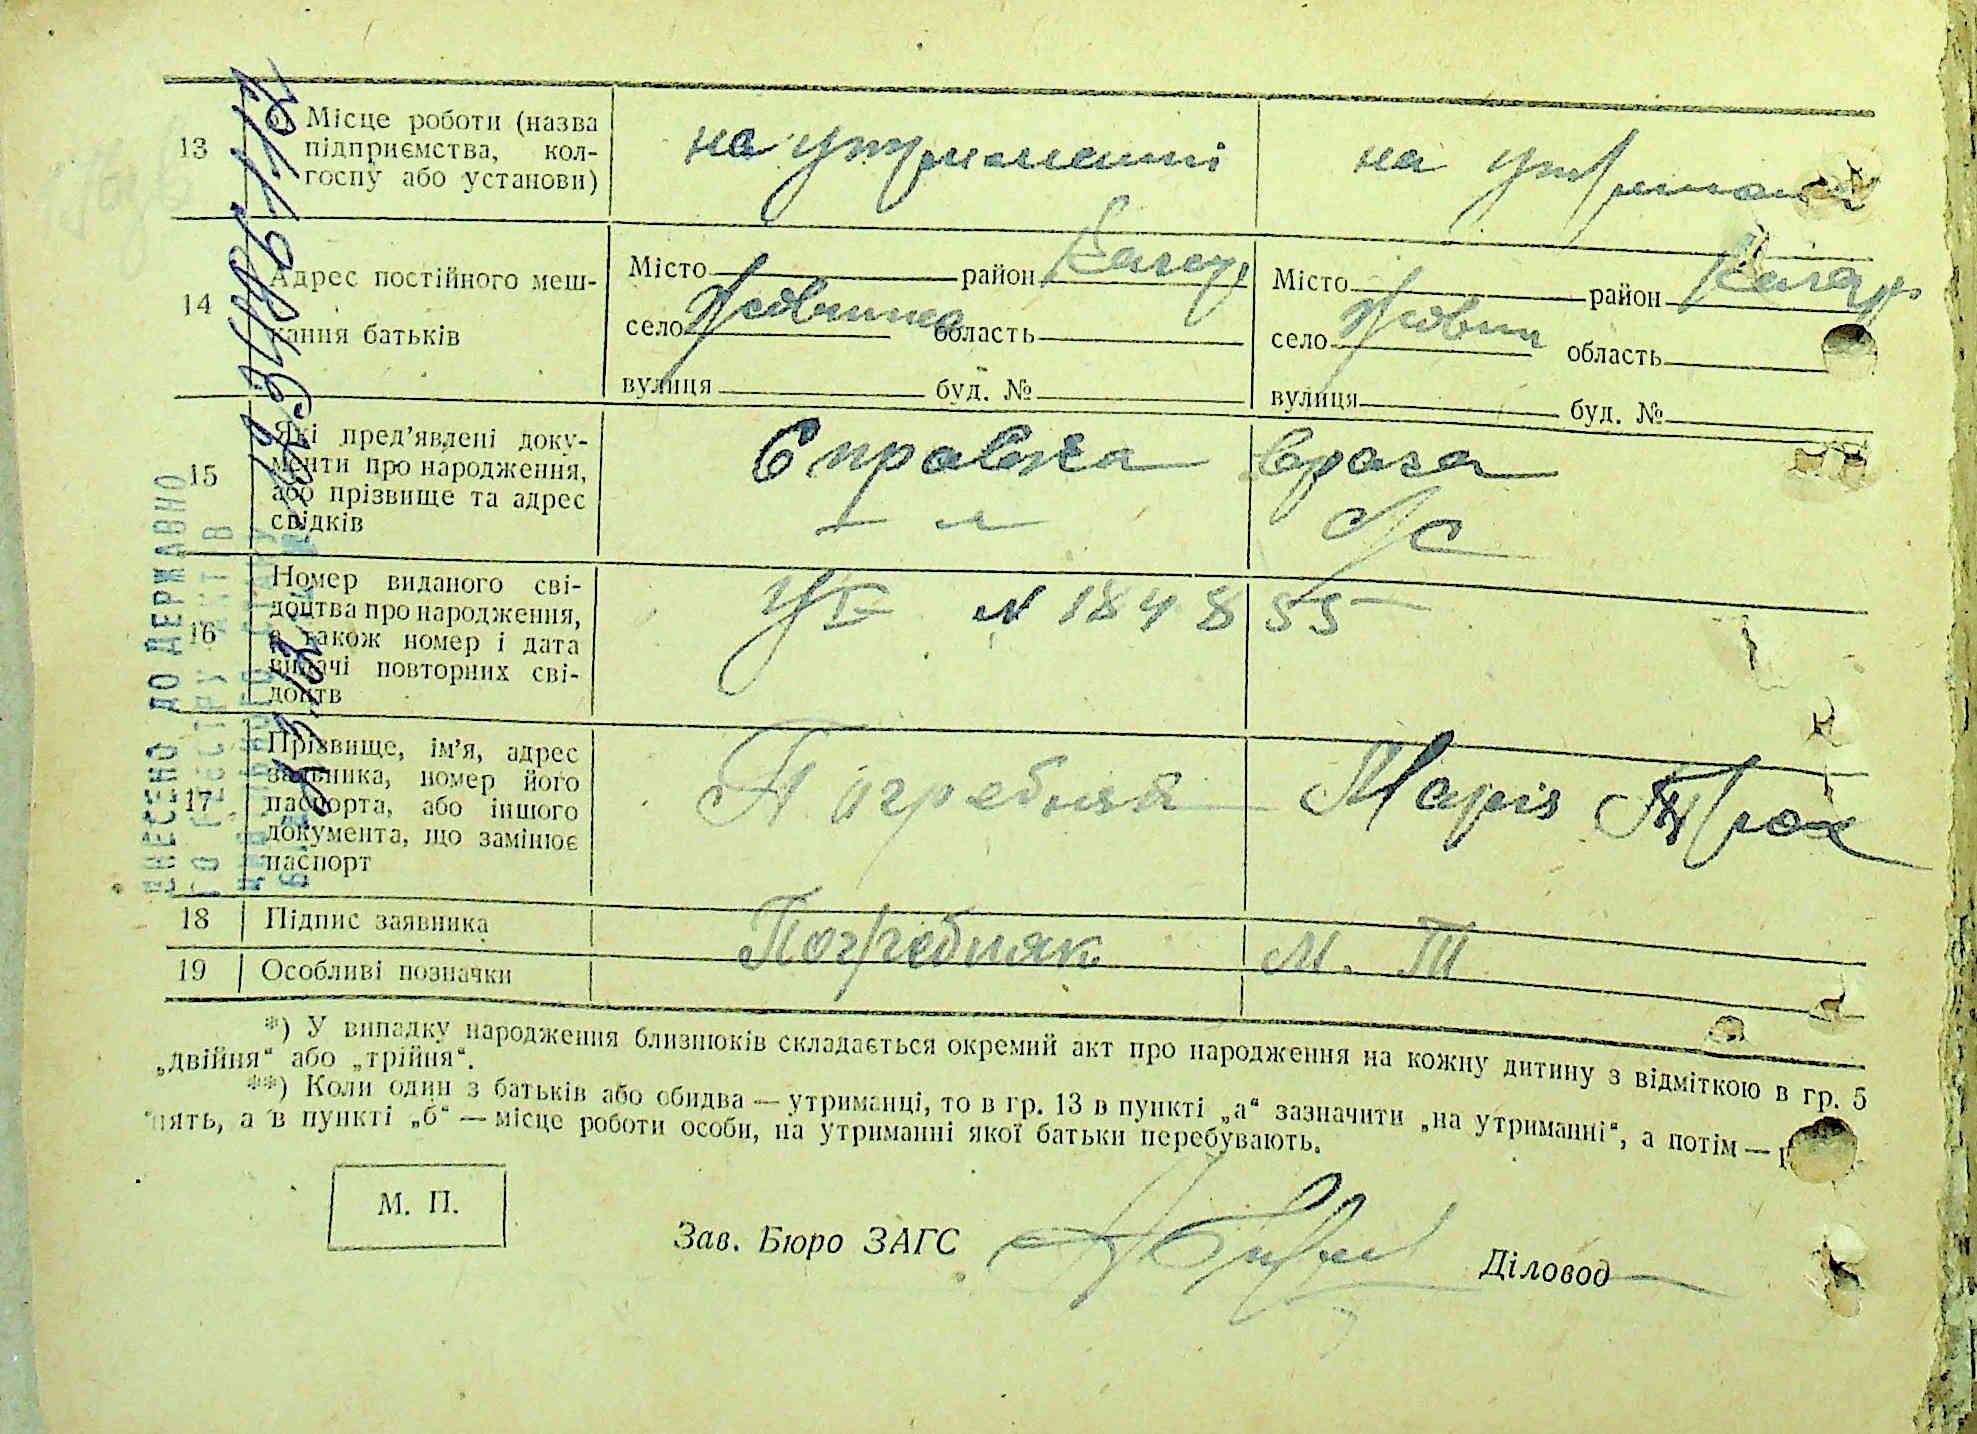 13 б) Місце роботи (назва
підприємства, кол-
госпу або установи)
на утриманні на утриманні
14 Адрес постійного меш-
кання батьків
Місто район Місто район
село Жовнина область село Жовнин область
вулиця буд. № вулиця буд. №
15 Які пред’явлені доку-
менти про народження,
або прізвище та адрес
свідків
Справка врача
16 Номер виданого сві-
доцтва про народження,
а також номер і дата
видачі повторних сві-
доцтв
N 184855
17 Прізвище, ім’я, адрес
заявника, номер його
паспорта, або іншого
документа, що замінює
паспорт
Погребняк Марія
18 Підпис заявника
Погребняк М. Т
19 Особливі позначки
*) У випадку народження близнюків складається окремий акт про народження на кожну дитину з відміткою в гр. 5
„двійня“ або „трійня“.
**) Коли один з батьків або обидва — утриманці, то в гр. 13 в пункті „а“ зазначити „на утриманні“, а потім —
нять, а в пункті „б“ — місце роботи особи, на утриманні якої батьки перебувають.
М. П.
Зав. Бюро ЗАГС Діловод
ВНЕСЕНО ДО ДЕРЖАВНО
ГО РЕЄСТРУ АКТІВ